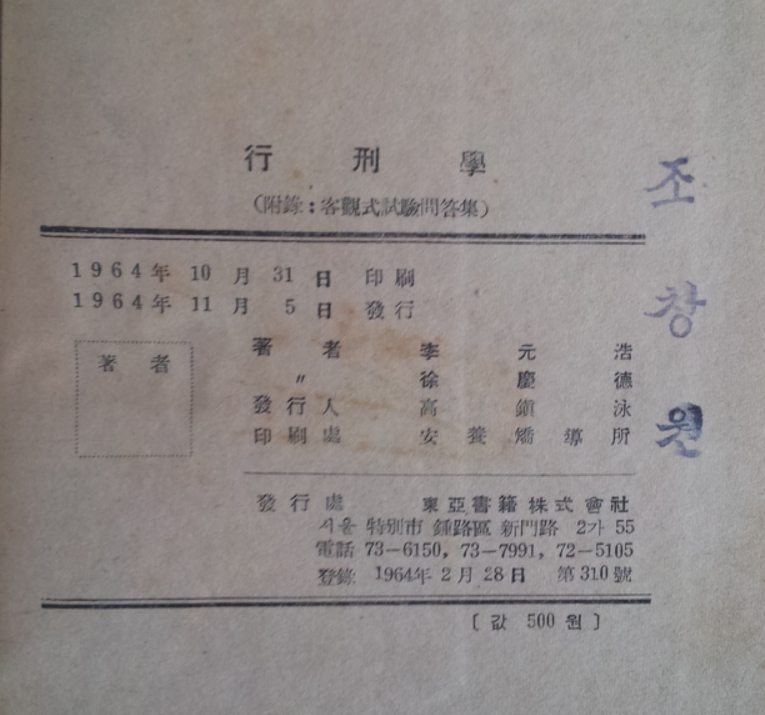 行刑學
(附錄:客觀式試驗問答集)
1964年 10月 31日 印刷
1964年 11月 5日 發行
著者
著者 李元浩
〃 徐慶德
發行人 高鎭泳
印刷處 安養矯導所
發行處 東亞書籍株式會社
서울 特別市 鍾路區 新門路 2가 55
電話 73-6150, 73-7991, 72-5105
登錄 1964年 2月 28日 第310號
[값 500 원]
조창원